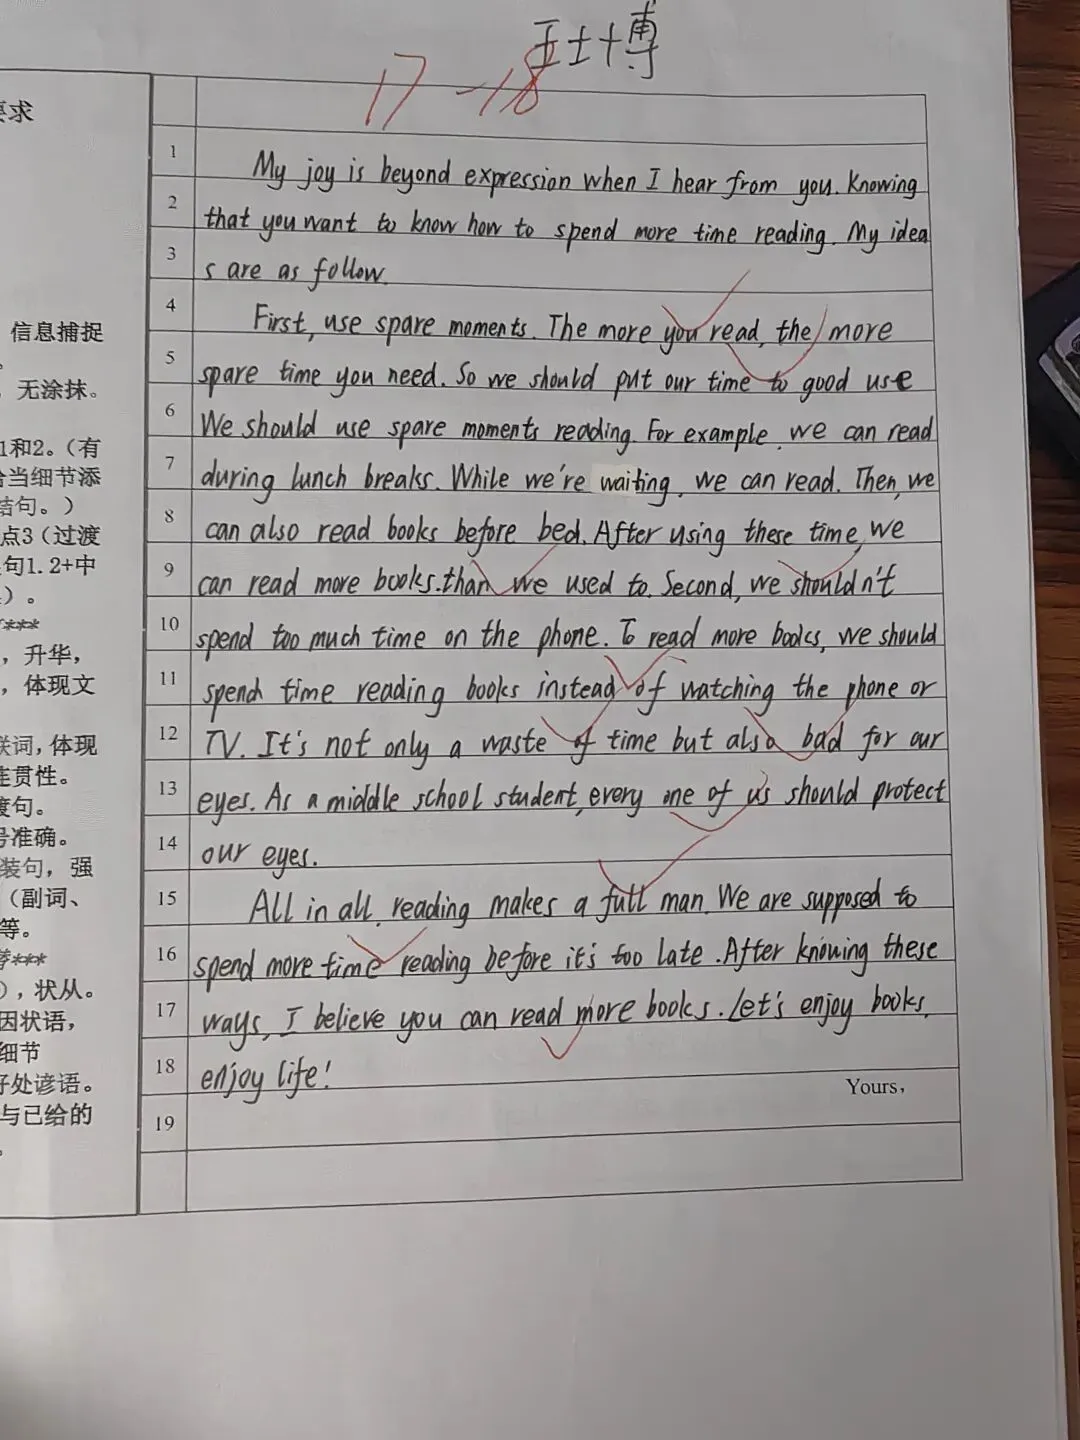 王士博
17-18
要求
1 My joy is beyond expression when I hear from you. Knowing
2 that you want to know how to spend more time reading. My idea
3 s are as follow.
4 First, use spare moments. The more you read, the more
信息捕捉
5 spare time you need. So we should put our time to good use
无涂抹。
6 We should use spare moments reading. For example, we can read
1和2。(有
7 during lunch breaks. While we're waiting, we can read. Then, we
当细节添
结句。)
8 can also read books before bed. After using these time, we
点3(过渡
句1.2+中
9 can read more books.than we used to. Second, we shouldn't
)。
10 spend too much time on the phone. To read more books, we should
***
,升华,
11 spend time reading books instead of watching the phone or
,体现文
12 TV. It's not only a waste of time but also bad for our
联词,体现
连贯性。
13 eyes. As a middle school student, every one of us should protect
渡句。
号准确。
14 our eyes.
装句,强
15 All in all, reading makes a full man. We are supposed to
(副词、
等。
16 spend more time reading before it's too late. After knowing these
***
),状从。
17 ways, I believe you can read more books. Let's enjoy books,
因状语,
细节
18 enjoy life!
好处谚语。
Yours,
与已给的
19